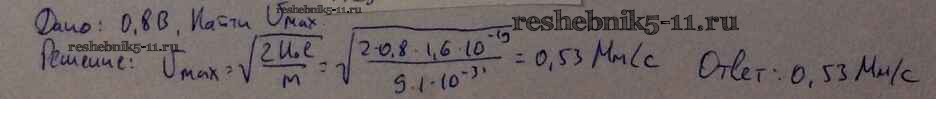 Дано: 0,8 В, Найти υmax.
reshebnik5-11.ru
reshebnik5-11.ru
reshebnik5-11.ru
Решение: υmax = √(2U₃e/m) = √(2·0,8·1,6·10⁻¹⁹/9,1·10⁻³¹) = 0,53 Мм/с Ответ: 0,53 Мм/с